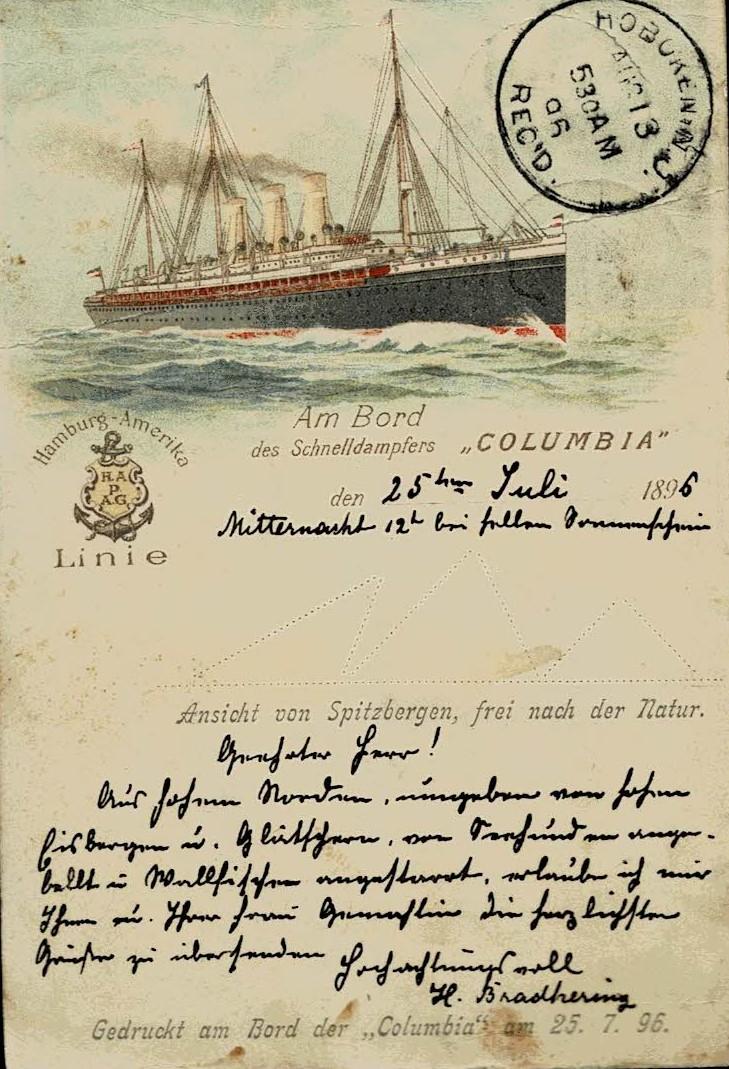 HOBOKEN, N.J.
AUG 13
530AM
96
REC'D.
Am Bord
des Schnelldampfers „COLUMBIA"
Hamburg-Amerika
H.A.
P.
A.G.
Linie
den 25ten Juli 1896
Mitternacht 12h bei hellem Sonnenschein
Ansicht von Spitzbergen, frei nach der Natur.
Geehrter Herr!
Aus hohem Norden, umgeben von hohen
Eisbergen u. Glätschern, von Seehunden ange-
bellt u Wallfischen angestarrt, erlaube ich mir
Ihnen u. Ihrer Frau Gemahlin die herzlichsten
Grüße zu übersenden Hochachtungsvoll
H. Bradhering
Gedruckt am Bord der „Columbia" am 25. 7. 96.